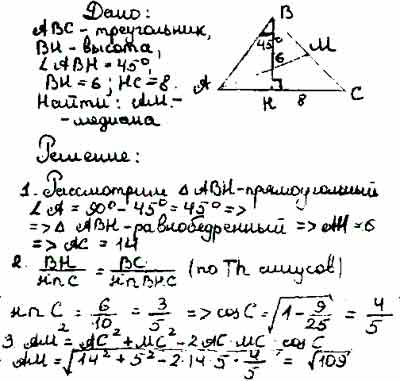 Дано:
ABC - треугольник,
BH - высота,
∠ABH = 45°,
BH = 6; HC = 8.
Найти: AM -
- медиана
B
45°
6
M
A
H
8
C
Решение:
1. Рассмотрим △ ABH - прямоугольный
∠A = 90° - 45° = 45° =>
=> △ ABH - равнобедренный => AH = 6
=> AC = 14
2. BH/sin C = BC/sin BHC (по Th синусов)
sin C = 6/10 = 3/5 => cos C = √(1 - 9/25) = 4/5
3 AM² = AC² + MC² - 2 AC · MC · cos C
AM = √(14² + 5² - 2 · 14 · 5 · 4/5) = √109